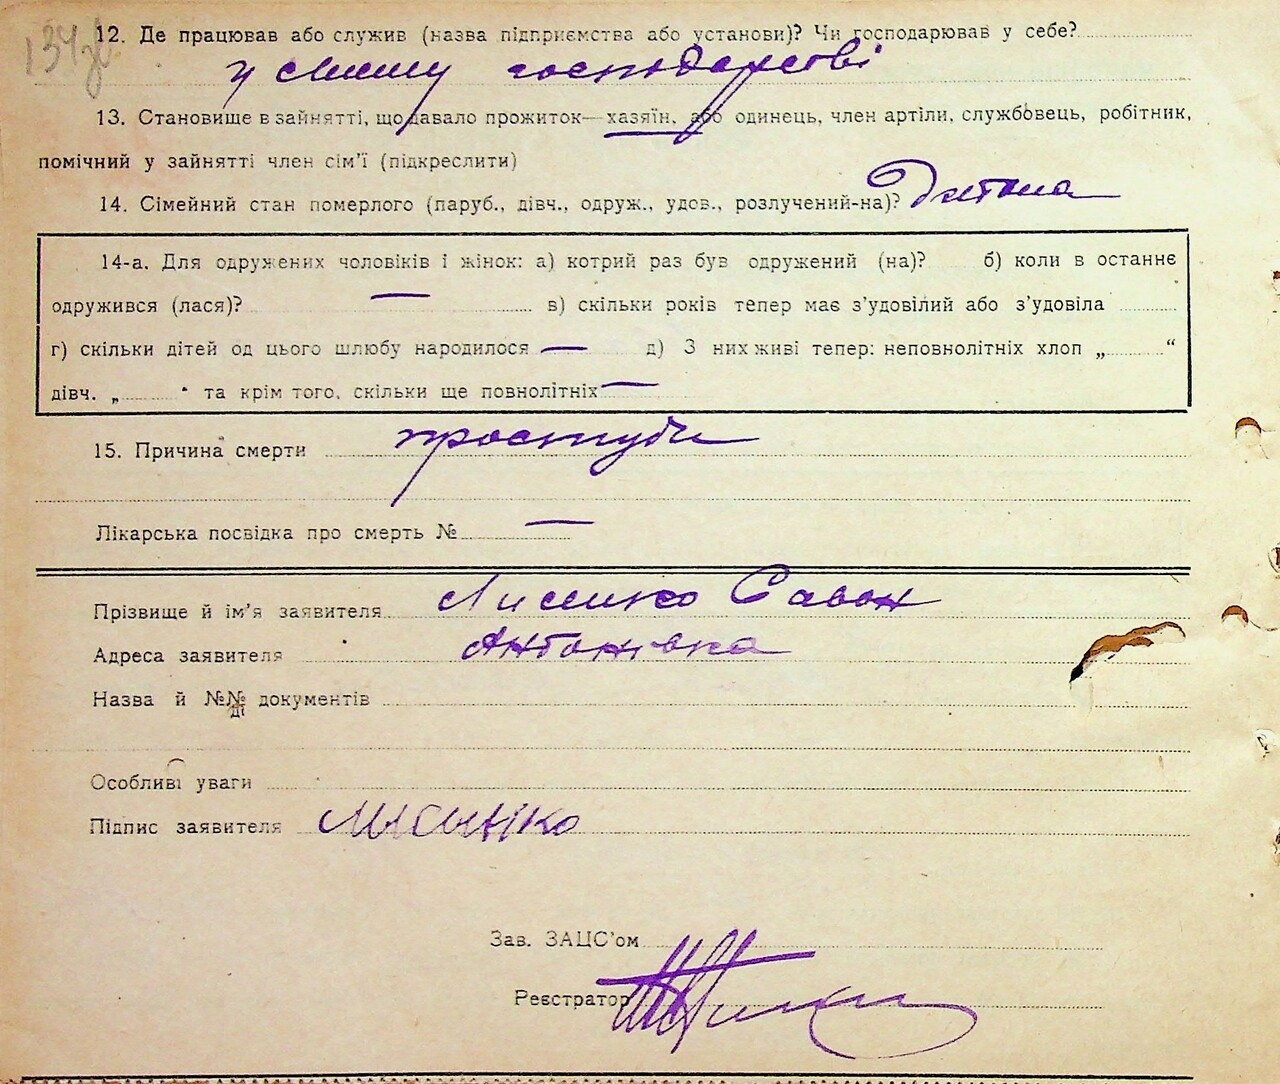 134
12. Де працював або служив (назва підприємства або установи)? Чи господарював у себе?
у господарстві
13. Становище в зайнятті, що давало прожиток— хазяїн, або одинець, член артіли, службовець, робітник,
помічний у зайнятті член сім'ї (підкреслити)
14. Сімейний стан померлого (паруб., дівч., одруж., удов., розлучений-на)? Дитина
14-а. Для одружених чоловіків і жінок: а) котрий раз був одружений (на)? б) коли в останнє
одружився (лася)? — в) скільки років тепер має з'удовілий або з'удовіла
г) скільки дітей од цього шлюбу народилося — д) З них живі тепер: неповнолітніх хлоп „ “
дівч. „ “ та крім того, скільки ще повнолітніх —
15. Причина смерти простуда
Лікарська посвідка про смерть № —
Прізвище й ім'я заявителя Лисенко Савон
Адреса заявителя Антонівка
Назва й №№ документів
Особливі уваги
Підпис заявителя Лисенко
Зав. ЗАЦС'ом
Реєстратор